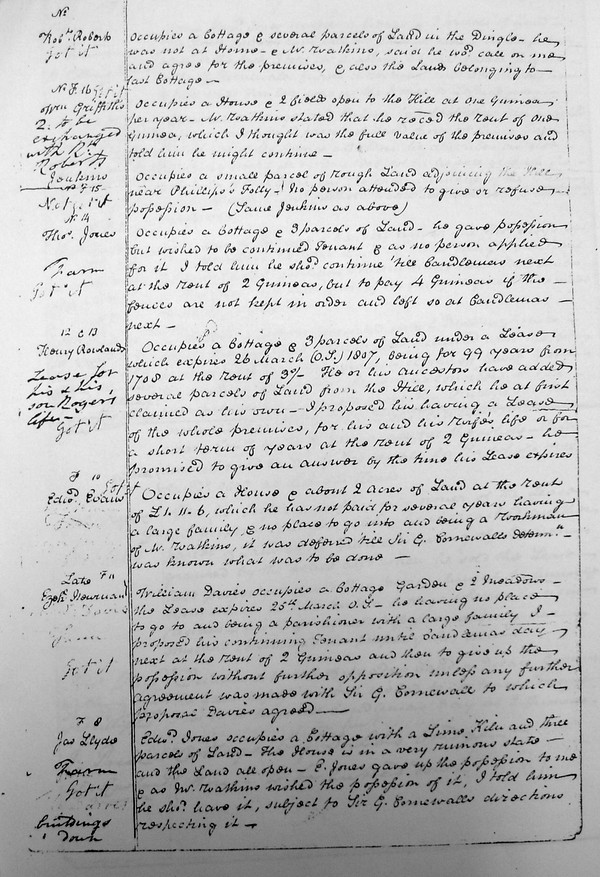 No
Thos. Roberts
Got it
Occupies a Cottage & several parcels of Land in the Dingle - he
was not at Home - & Mr. Watkins, said he wod. call on me
and agree for the premises, & also the Land belonging to
last Cottage -
No F. 16 Got it
Griffiths
2. to be
exchanged
with R.
Robert
Jenkins
Occupies a House & 2 fields open to the Hill at One Guinea
per year - Mr. Watkins stated that he recd. the rent of one
Guinea, which I thought was the full value of the premises and
told him he might continue -
No F 15
Not got it
Occupies a small parcel of rough Land adjoining the Hill
near Phillips's Folly - No person attended to give or refuse
possession - (Same Jenkins as above)
No 14
Thos. Jones
Farm
Got it
Occupies a Cottage & 3 parcels of Land - he gave possession
but wished to be continued Tenant & as no person applied
for it I told him he shod. continue till Candlemas next
at the rent of 2 Guineas, but to pay 4 Guineas if the
fences are not kept in order and left so at Candlemas
next -
12 & 13
Henry Rowlands
Lease for
his & his
son Roger's
life -
Got it
Occupies a Cottage & 3 parcels of Land under a Lease
which expires 26 March (O.S.) 1807, being for 99 years from
1708 at the rent of 3/- He or his ancestors have added
several parcels of Land from the Hill, which he at first
claimed as his own - I proposed his having a Lease
of the whole premises, for his and his Wife's life or for
a short term of years at the rent of 2 Guineas - he
promised to give an answer by the time his Lease expires
F 10
Got it
Edwd. Evans
Occupies a House & about 2 Acres of Land at the rent
of £1. 11. 6, which he has not paid for several years having
a large family & no place to go into and being a Workman
of Mr. Watkins, it was deferred till Sir G. Cornewalls determn.
was known what was to be done -
Late F 11
Ezekl. Newman
Farm
Got it
William Davies occupies a Cottage Garden & 2 Meadows -
the Lease expires 25th March O.S. - he having no place
to go to and being a parishioner with a large family I
proposed his continuing Tenant until Candlemas day
next at the rent of 2 Guineas and then to give up the
possession without further opposition unless any further
agreement was made with Sir G. Cornewall to which
proposal Davies agreed -
F 8
Jas Llyde
Farm
Got it
buildings
down
Edwd. Jones occupies a Cottage with a Lime Kiln and three
parcels of Land - The House is in a very ruinous state
and the Land all open - E. Jones gave up the possession to me
& as Mr. Watkins wished the possession of it, I told him
he shod. have it, subject to Sir G. Cornewalls directions
respecting it -